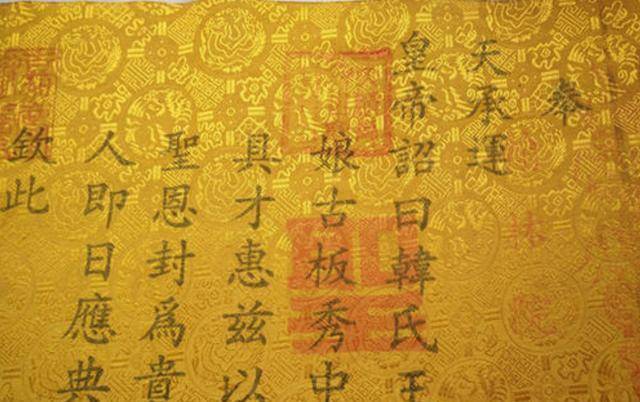 奉
天承運
皇帝詔曰韓氏王
娘古板秀中
具才惠兹以
聖恩封為貴
人即日應典
欽此